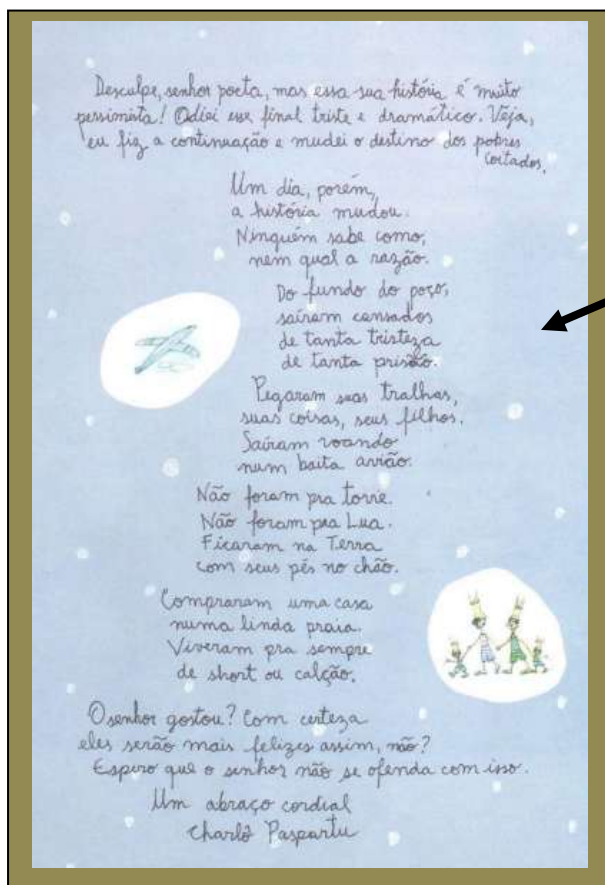 Desculpe, senhor poeta, mas essa sua história é muito
pessimista! Odiei esse final triste e dramático. Veja,
eu fiz a continuação e mudei o destino dos pobres
coitados.
Um dia, porém,
a história mudou.
Ninguém sabe como,
nem qual a razão.
Do fundo do poço,
saíram cansados
de tanta tristeza
de tanta prisão.
Pegaram suas tralhas,
suas coisas, seus filhos.
Saíram voando
num baita avião.
Não foram pra torre.
Não foram pra Lua.
Ficaram na Terra
com seus pés no chão.
Compraram uma casa
numa linda praia.
Viveram pra sempre
de short ou calção.
O senhor gostou? Com certeza
eles serão mais felizes assim, não?
Espero que o senhor não se ofenda com isso.
Um abraço cordial
Charlô Paspartu